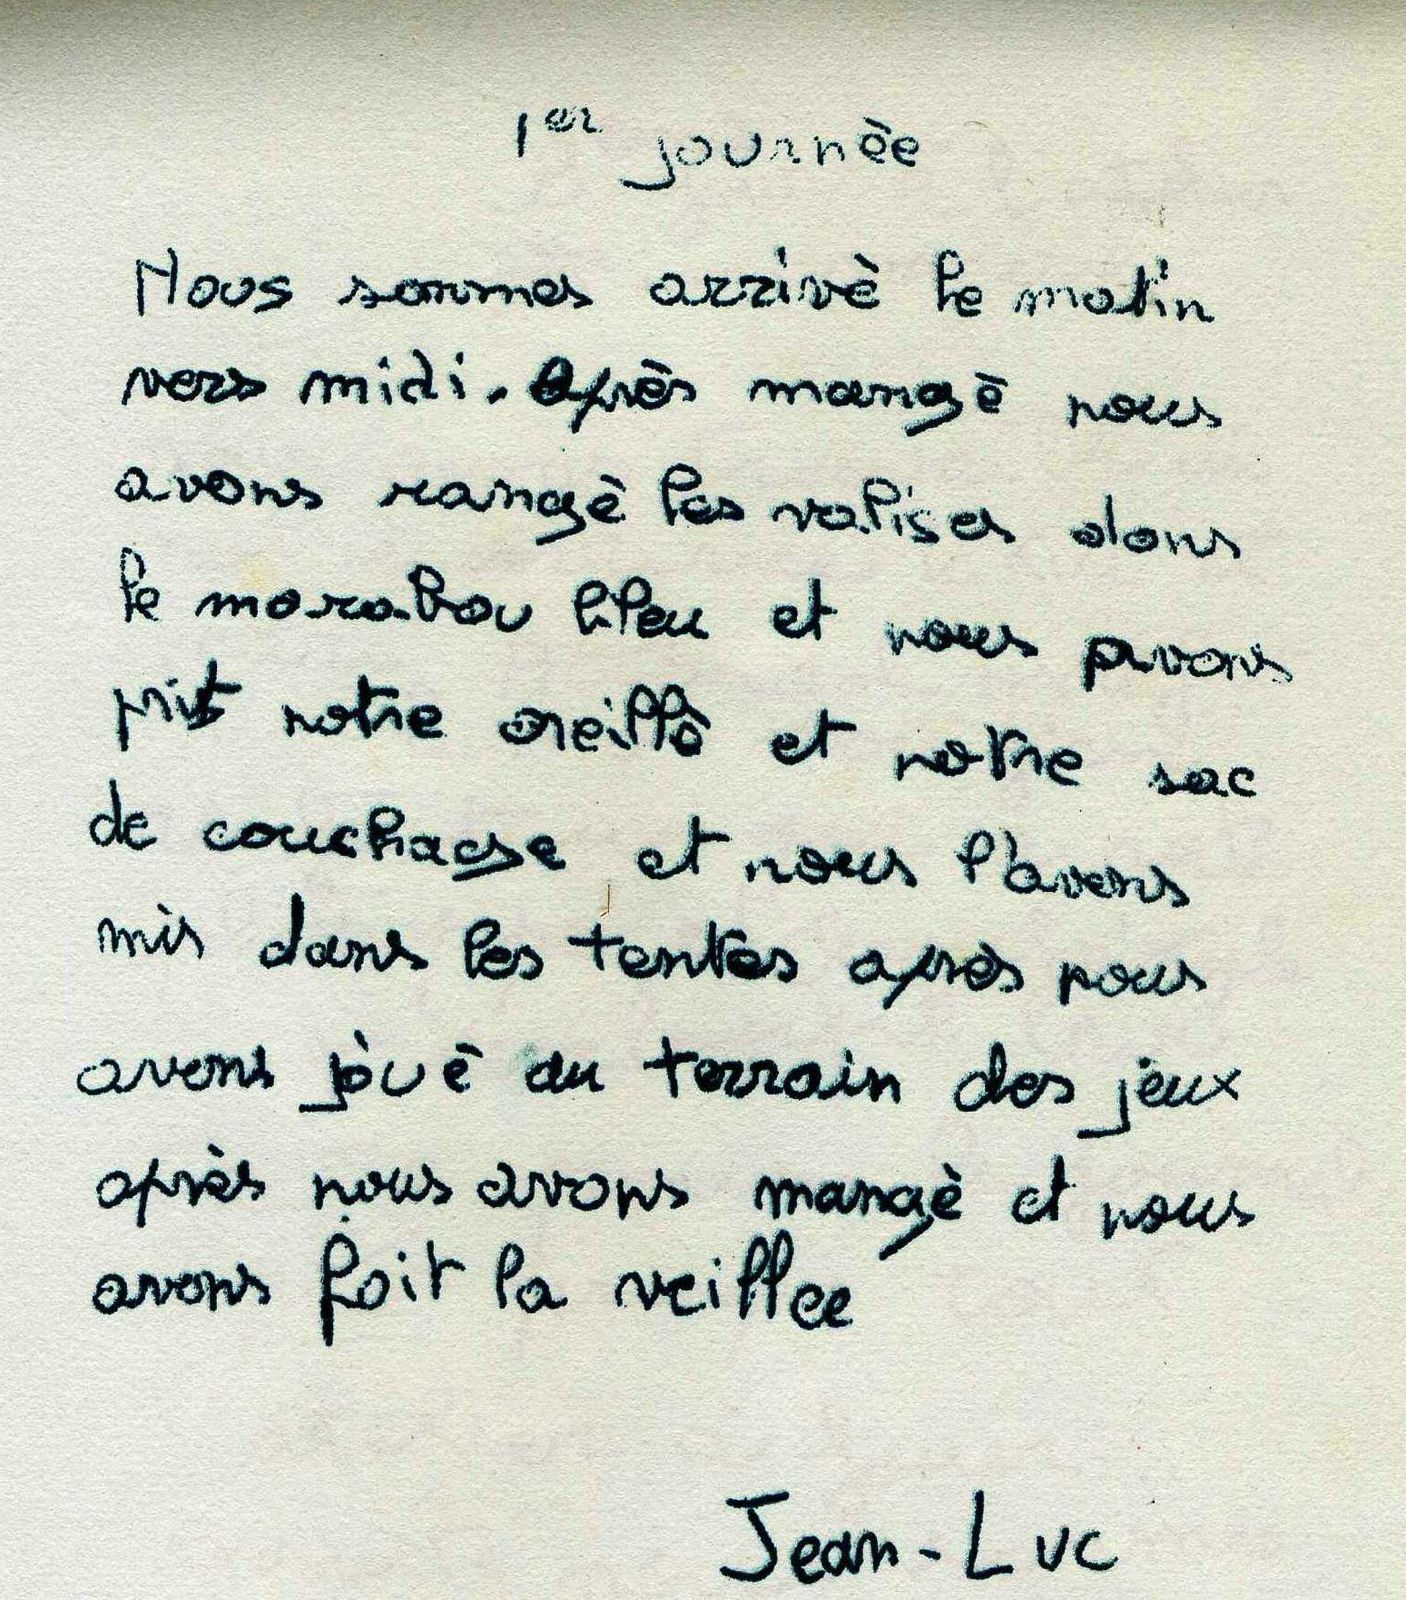 1er journèe
Nous sommes arrivè le matin
vers midi. Après mangè nous
avons rangè les valises dans
le marabou bleu et nous avons
prit notre oreillô et notre sac
de couchage et nous l'avons
mis dans les tentes après nous
avons jouè au terrain des jeux
après nous avons mangè et nous
avons fait la veillee
Jean-Luc